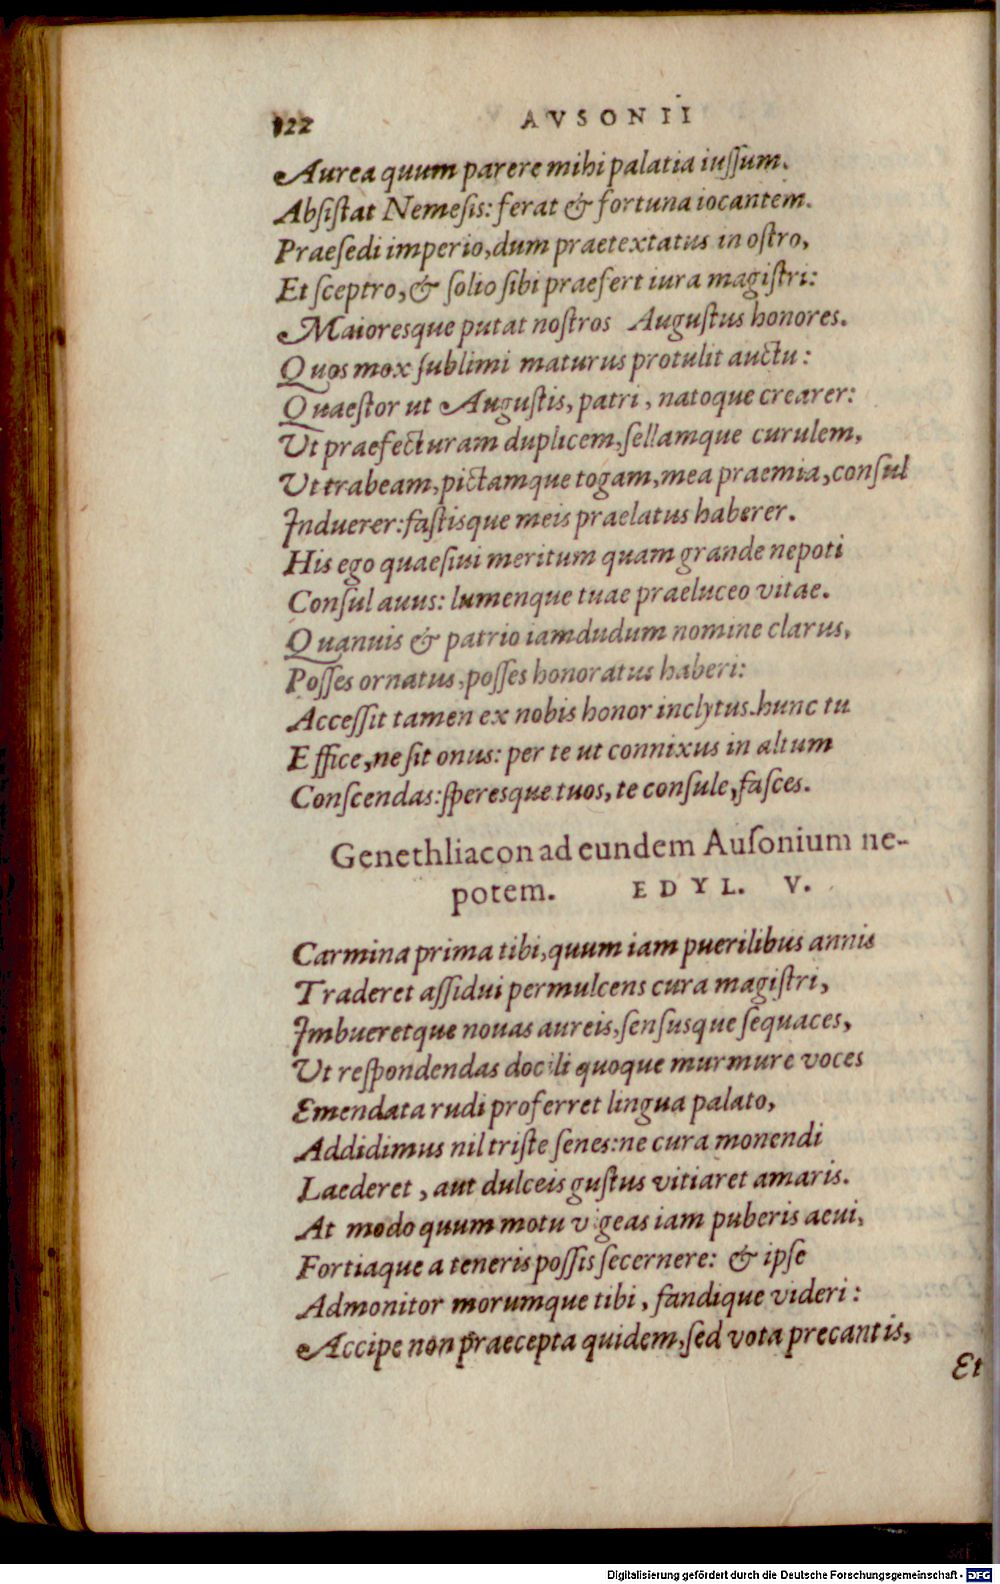 122 AVSONII
Aurea quum parere mihi palatia iuſſum.
Abſiſtat Nemeſis: ferat & fortuna iocantem.
Praeſedi imperio, dum praetextatus in oſtro,
Et ſceptro, & ſolio ſibi praefert iura magiſtri:
Maioresque putat noſtros Auguſtus honores.
Quos mox ſublimi maturus protulit auctu:
Quaeſtor ut Auguſtis, patri, natoque crearer:
Ut praefecturam duplicem, ſellamque curulem,
Ut trabeam, pictamque togam, mea praemia, conſul
Induerer: faſtisque meis praelatus haberer.
His ego quaeſiui meritum quam grande nepoti
Conſul auus: lumenque tuae praeluceo vitae.
Quanuis & patrio iamdudum nomine clarus,
Poſſes ornatus, poſſes honoratus haberi:
Acceſſit tamen ex nobis honor inclytus. hunc tu
Effice, ne ſit onus: per te ut connixus in altum
Conſcendas: ſperesque tuos, te conſule, faſces.
Genethliacon ad eundem Auſonium ne-
potem. EDYL. V.
Carmina prima tibi, quum iam puerilibus annis
Traderet aſſidui permulcens cura magiſtri,
Imbueretque nouas aureis, ſensusque ſequaces,
Ut reſpondendas docili quoque murmure voces
Emendata rudi proferret lingua palato,
Addidimus nil triſte ſenes: ne cura monendi
Laederet, aut dulceis guſtus vitiaret amaris.
At modo quum motu vigeas iam puberis aeui,
Fortiaque a teneris poſſis ſecernere: & ipſe
Admonitor morumque tibi, fandique videri:
Accipe non praecepta quidem, ſed vota precantis,
Et
Digitalisierung gefördert durch die Deutsche Forschungsgemeinschaft - DFG